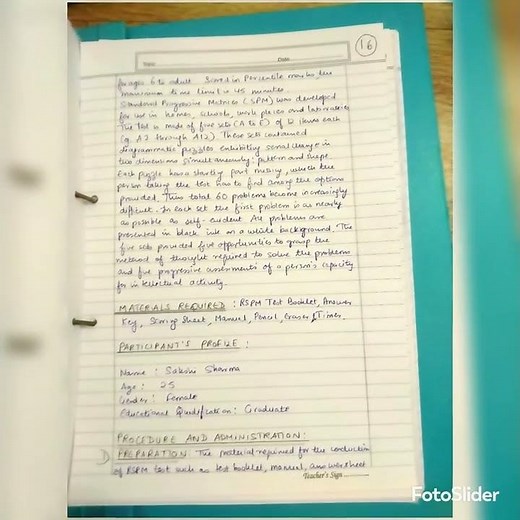 16
Date
for ages 6 to adult. Scored in Percentile marks the
maximum time limit is 45 minutes
Standard Progressive Matrices (SPM) was developed
for use in homes, schools, work places and laboratories
The test is made of five sets (A to E) of 12 items each
(eg. A1 through A12). These sets contained
diagrammatic puzzles exhibiting serial change in
two dimensions simultaneously: pattern and shape
Each puzzle has a part missing, which the
person taking the test has to find among the options
provided. Thus total 60 problems become increasingly
difficult. In each set the first problem is as nearly
as possible as self-evident. All problems are
presented in black ink on a white background. The
five sets provided five opportunities to grasp the
method of thought required to solve the problems
and five progressive assessments of a person's capacity
for intellectual activity.
MATERIALS REQUIRED : RSPM Test Booklet, Answer
Key, Scoring Sheet, Manual, Pencil, Eraser, Timer.
PARTICIPANT'S PROFILE :
Name : Sakshi Sharma
Age : 25
Gender : Female
Educational Qualification : Graduate
PROCEDURE AND ADMINISTRATION:
1) PREPARATION The material required for the conduction
of RSPM test such as test booklet, manual, answer sheet
Teacher's Sign
FotoSlider